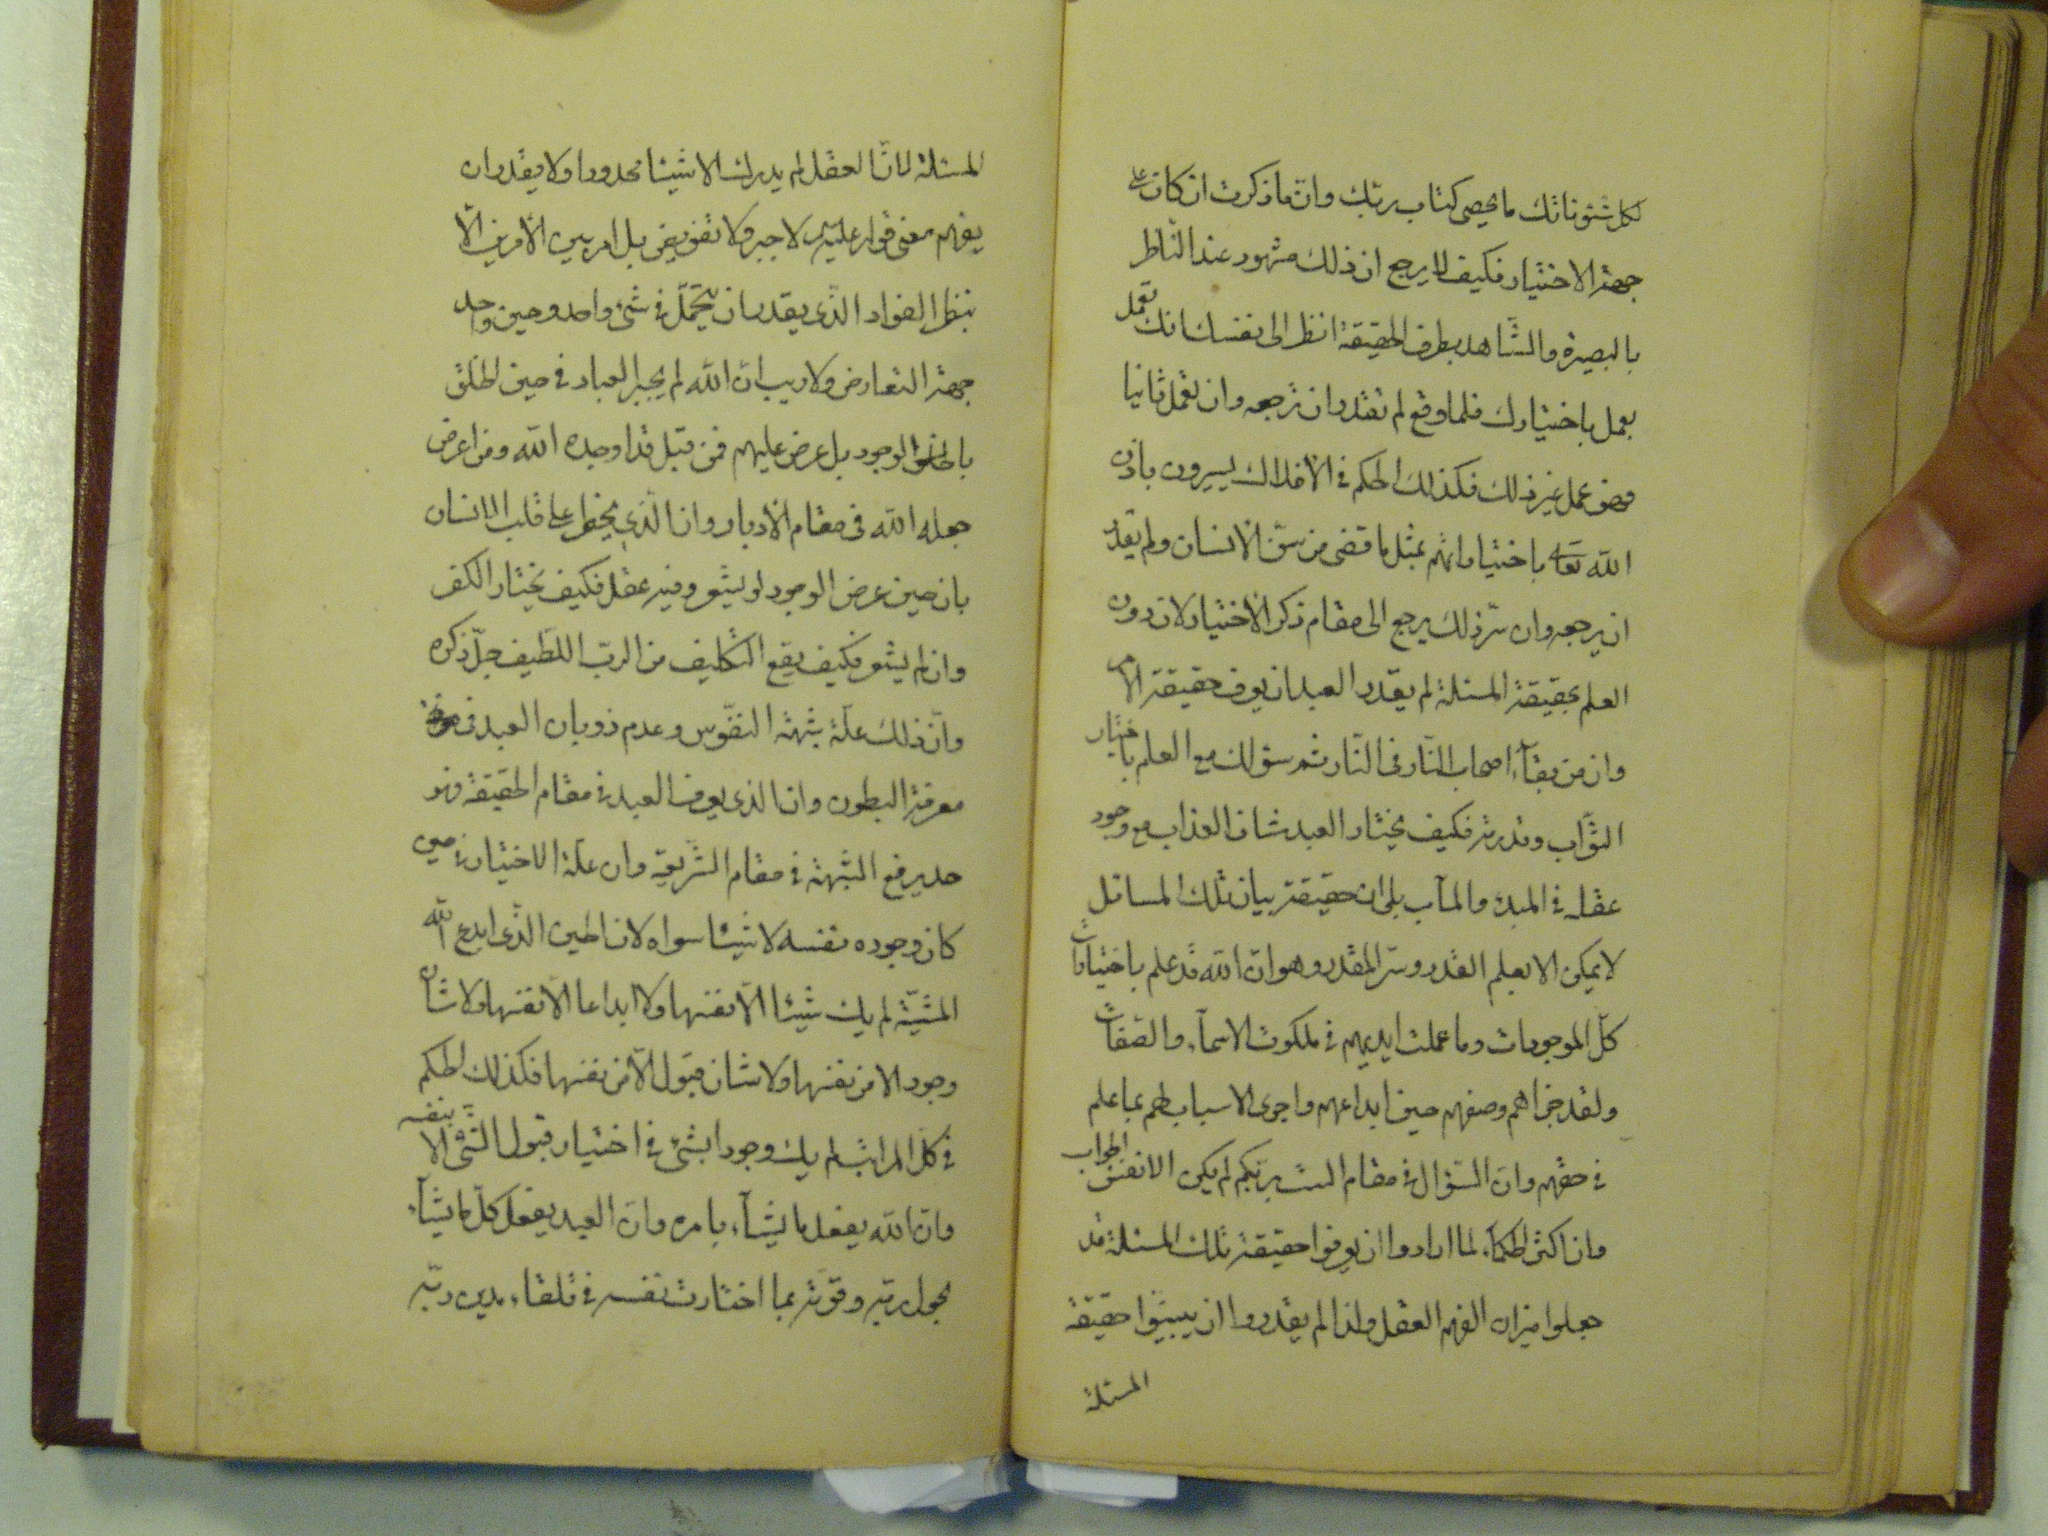 لكل شئوناتك ما يحصي كتاب ربك وان ما ذكرت ان كان على
جهة الاختيار فكيف لا يرجع ان ذلك مشهود عند الناظر
بالبصيرة والشاهد بطرف الحقيقة انظر الى نفسك انك تعمل
بعمل باختيارك فلما وقع لم تقدر ان ترجعه وان تعمل ثانيا
فهو عمل غير ذلك فكذلك الحكم في الافلاك يسيرون باذن
الله تعا باختياراتهم بمثل ما قضى من سن الانسان ولم يقدر
ان يرجعه وان سر ذلك يرجع الى مقام ذكر الاختيار لان دون
العلم بحقيقة المسئلة لم يقدر العبدان يعرف حقيقة الامر
وان من بقآء اصحاب النار في النار ثم سؤالك مع العلم باختيار
الثواب وقدرته فكيف يختار العبد شان العذاب مع وجود
عقله في المبدء والمآب بلى ان حقيقة بيان تلك المسائل
لا يمكن الا بعلم القدر وسر المقدر وهو ان الله قد علم باختيارات
كل الموجودات وما عملت ايديهم في ملكوت الاسمآء والصفات
ولقد جزاهم وصفهم حين ابداعهم واجرى الاسباب لهم بما علم
في حقهم وان السؤال في مقام الست بربكم لم يكن الا نفس الجواب
وان اكثر الحكمآء لما ارادوا ان يعرفوا حقيقة تلك المسئلة قد
جعلوا ميزان الفهم العقل ولذا لم يقدروا ان يبينوا حقيقة
المسئلة
المسئلة لان العقل لم يدرك الا شيئا محدودا ولا يقدر ان
يفهم معنى قوله عليه السلام لا جبر ولا تفويض بل امر بين الامرين الا
بنظر الفواد الذي يقدر ان يتحمل في شئ واحد وحين واحد
جهة التعارض ولا ريب ان الله لم يجبر العباد في حين الخلق
بالخلق الوجود بل عرض عليهم فمن قبل قد اوجده الله ومن اعرض
جعله الله في مقام الادبار وان الذي يخطر على قلب الانسان
بان حين عرض الوجود لو يشعر وفيه عقل فكيف يختار الكفر
وان لم يشعر فكيف يقع التكليف من الرب اللطيف جل ذكره
وان ذلك علة شبهة النفوس وعدم ذوبان العبد في
معرفة البطون وان الذي يعرف العبد في مقام الحقيقة فهو
حد يرفع الشبهة في مقام الشريعة وان علة الاختيار في حين
كان وجوده نفسه لا شيئا سواه لان الحين الذي ابدع الله
المشية لم يك شيئا الا نفسها ولا ابداعا الا نفسها ولا شان
وجود الا من نفسها ولا شان قبول الا من نفسها فكذلك الحكم
في كل المراتب لم يك وجودا بشئ في اختيار قبول الشئ الا بنفسه
وان الله يفعل ما يشآء بامره وان العبد يفعل كل ما يشآء
بحول ربه وقوته بما اختارت نفسه في تلقاء مدين ربه